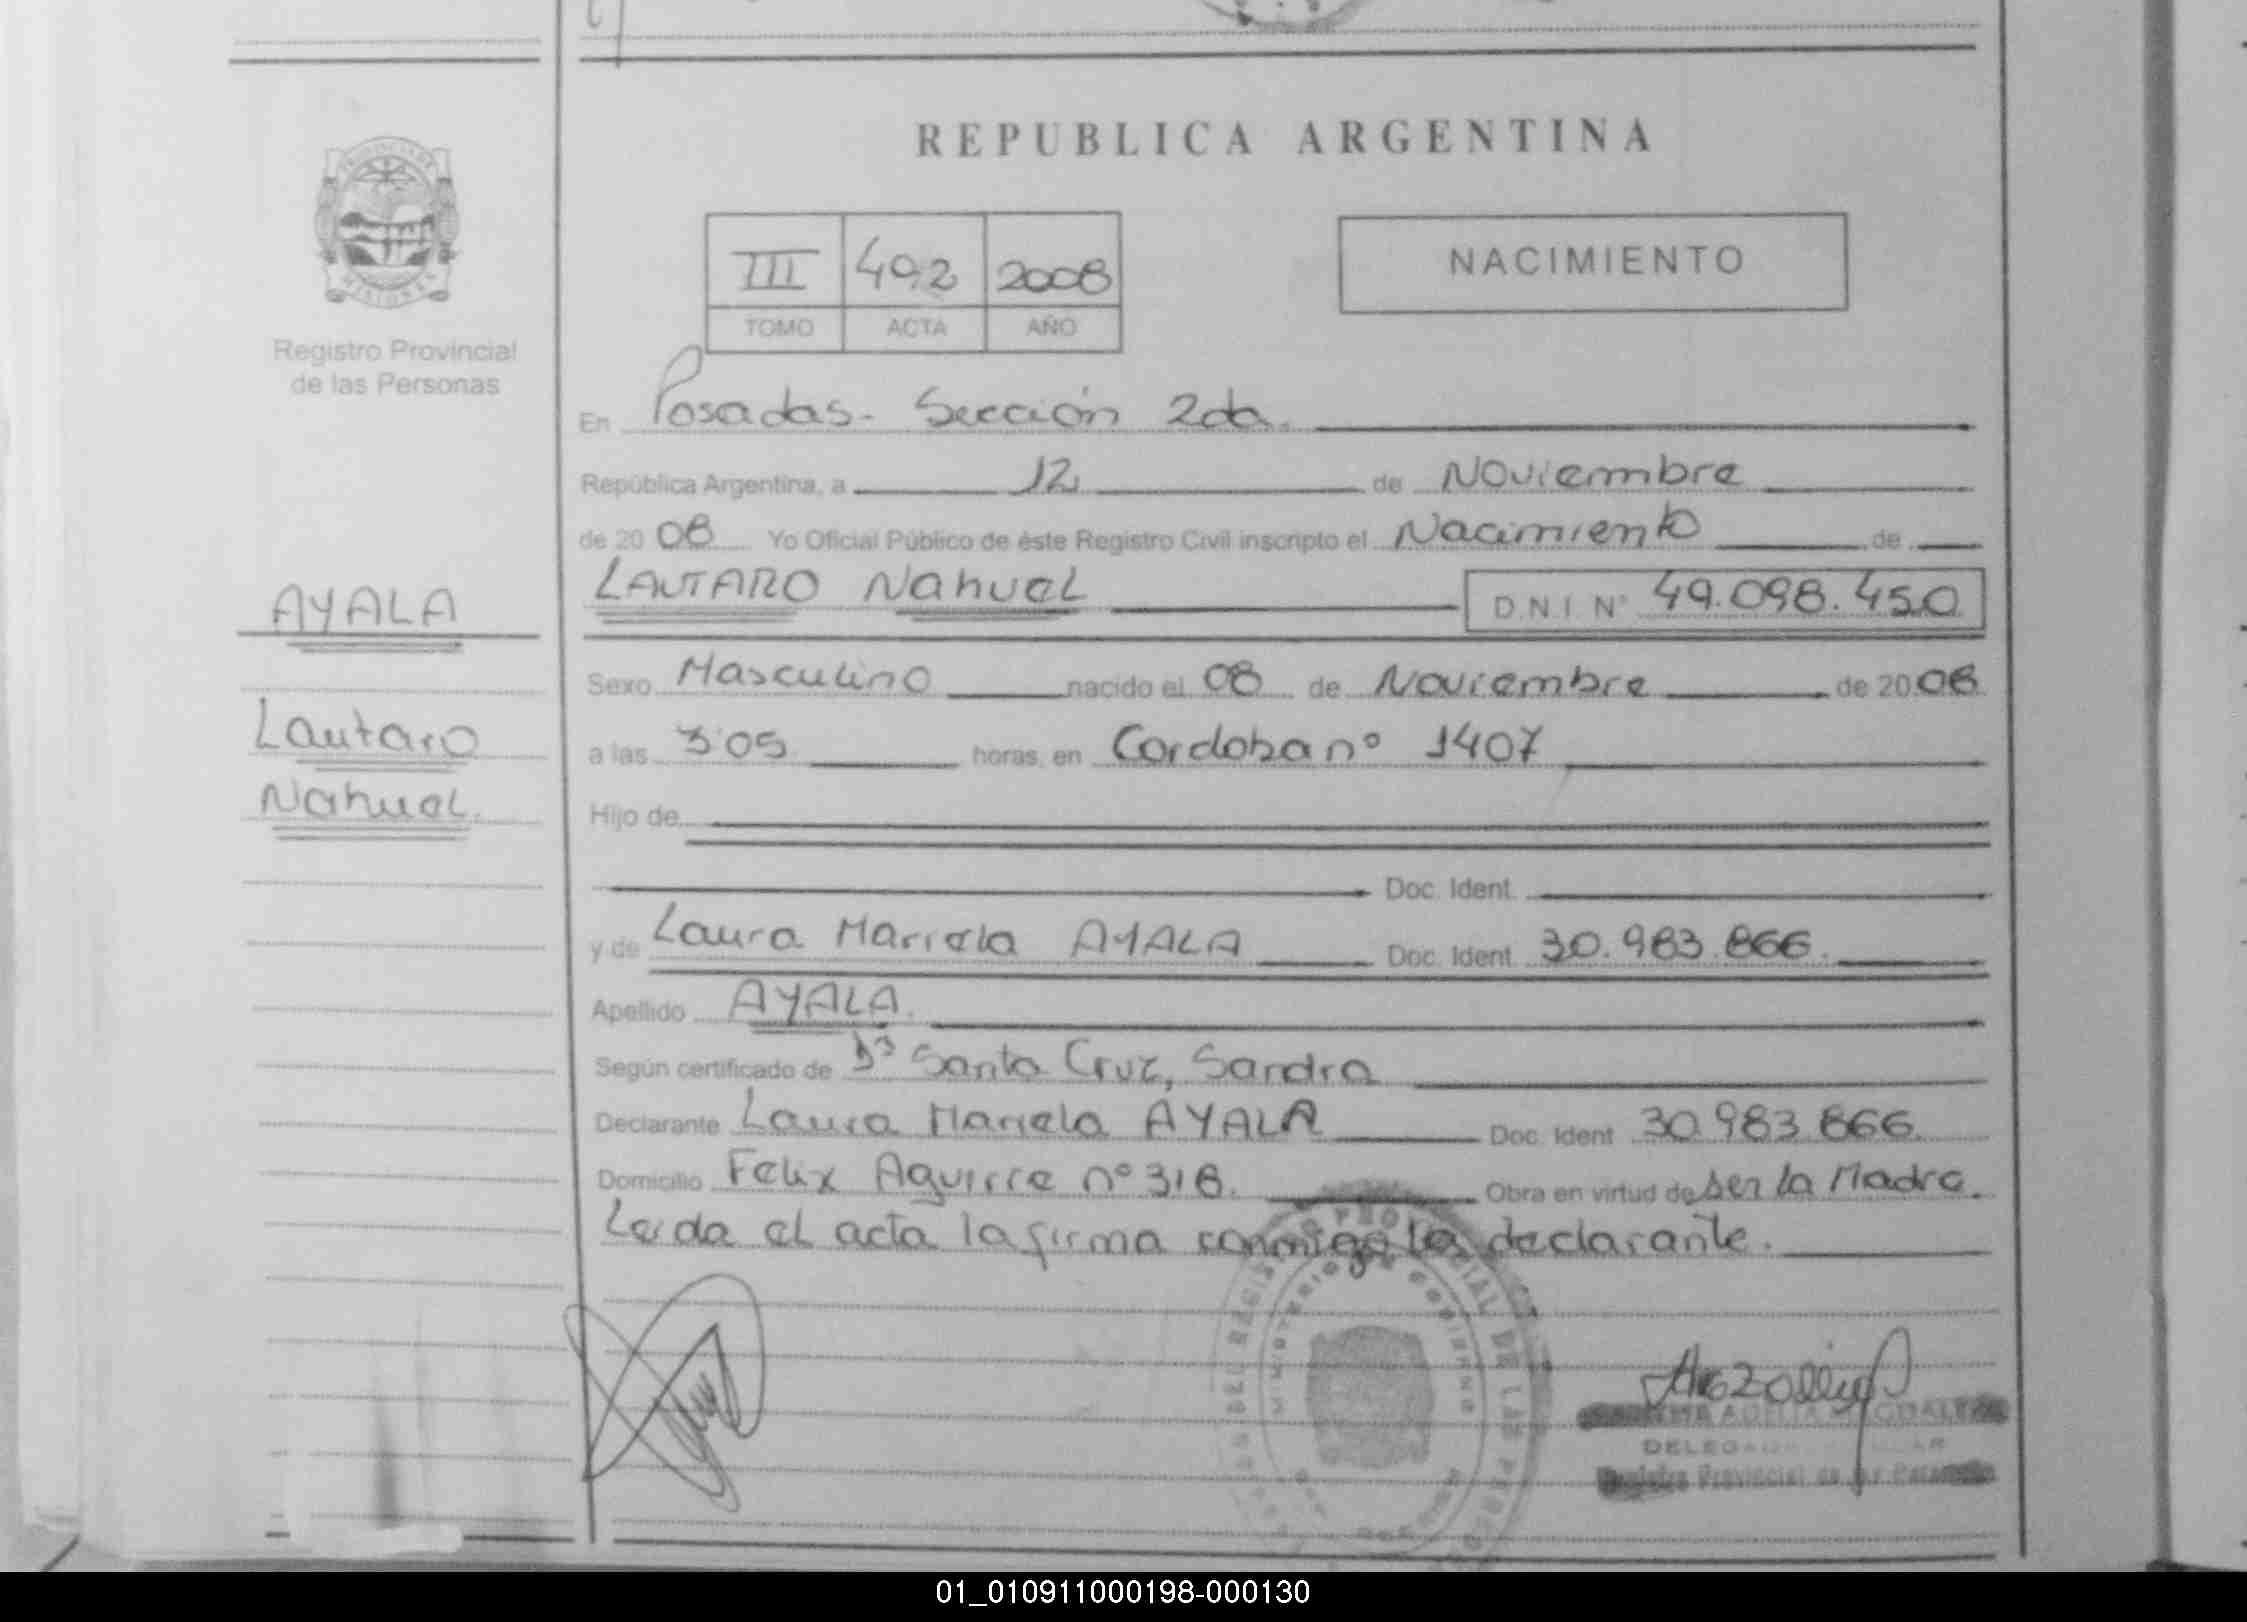 REPUBLICA ARGENTINA
PROVINCIA DE
MISIONES
Registro Provincial
de las Personas
III 492 2008
TOMO ACTA AÑO
NACIMIENTO
En Posadas - Sección 2da.
República Argentina, a 12 de Noviembre
de 2008 Yo Oficial Público de éste Registro Civil inscripto el Nacimiento de
AYALA
Lautaro
Nahuel.
LAUTARO Nahuel D.N.I. Nº 49.098.450
Sexo Masculino nacido el 08 de Noviembre de 2008
a las 3:05 horas, en Cordoba nº 1407
Hijo de
Doc. Ident.
y de Laura Mariela AYALA Doc. Ident. 30.983.866.
Apellido AYALA.
Según certificado de Santa Cruz, Sandra
Declarante Laura Mariela AYALA Doc. Ident 30.983.866.
Domicilio Felix Aguirre nº 318. Obra en virtud de ser la Madre.
Leida el acta la firma conmigo la declarante.
REGISTRO PROVINCIAL DE LAS
MINISTERIO DE GOBIERNO
Registro Provincial de las Personas
01_010911000198-000130